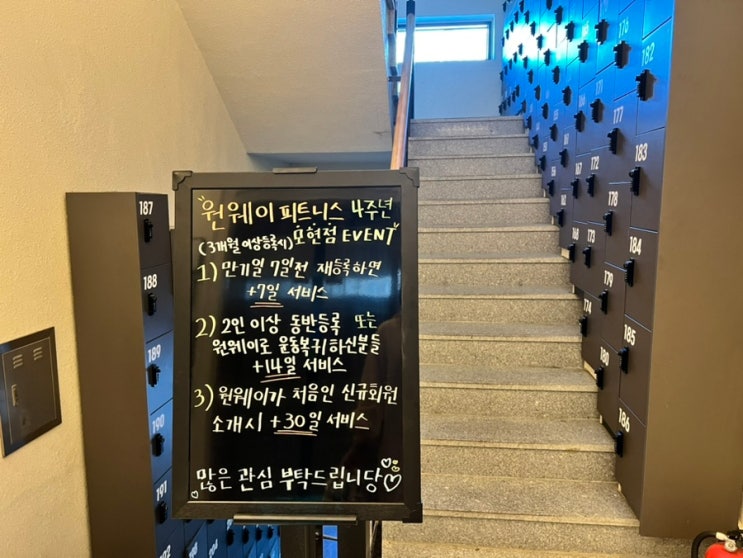 원웨이 피트니스 4주년
(3개월 이상등록시) 모현점 EVENT
1) 만기일 7일전 재등록하면
+7일 서비스
2) 2인 이상 동반등록 또는
원웨이로 운동복귀 하신분들
+14일 서비스
3) 원웨이가 처음인 신규회원
소개시 +30일 서비스
많은 관심 부탁드립니당
187
188
189
190
191
192
176
182
171
183
172
177
178
167
168
173
184
179
174
185
180
186